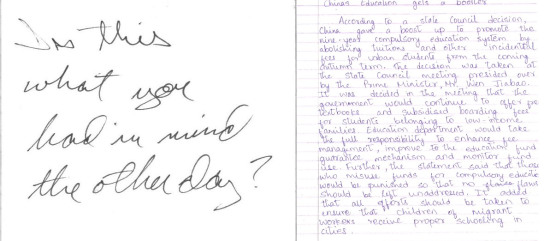 Is this
what you
had in mind
the other day?
China's Education gets a booster
According to a state Council decision,
China gave a boost up to promote the
nine-year compulsory education system by
abolishing tuitions and other incidental
fees for urban students from the coming
autumn term. The decision was taken at
the State Council meeting presided over
by the Prime Minister, Mr. Wen Jiabao.
It was decided in the meeting that the
government would continue to offer
textbooks and subsidised boarding fees
for students belonging to low-income
families. Education department would take
the full responsibility to enhance
management, improve to the education fund
guarantee mechanism and monitor fund
use. Further, the statement said that those
who misuse funds for compulsory
would be punished so that no flaws
should be left unaddressed. It added
that all efforts should be taken to
ensure that children of migrant
workers receive proper schooling in
cities.